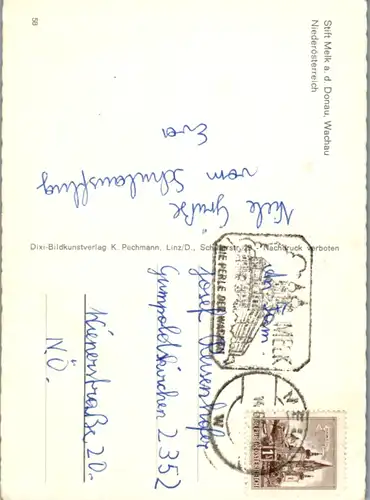 Stift Melk a. d. Donau, Wachau
Niederösterreich
59
Viele Grüße
vom Schulausflug
Eva
Dixi-Bildkunstverlag K. Pechmann, Linz/D., Nachdruck verboten
DIE PERLE DER WACHAU
MELK
MELK
An Fam.
Josef
Gumpoldskirchen 2352
Wienerstraße 20.
N.Ö.
REPUBLIK ÖSTERREICH